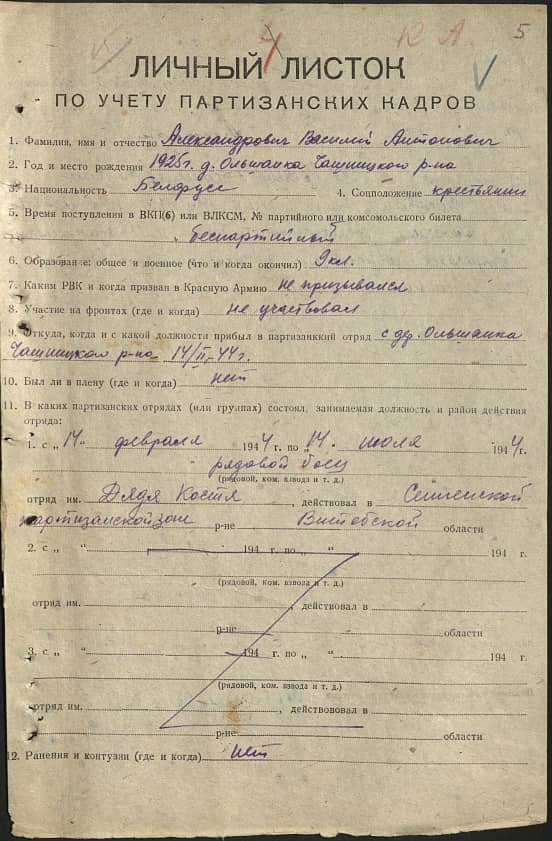 К А. 5
4
ЛИЧНЫЙ ЛИСТОК
ПО УЧЕТУ ПАРТИЗАНСКИХ КАДРОВ
1. Фамилия, имя и отчество Александрович Василий Антонович
2. Год и место рождения 1925 г. д. Ольшанка Чашницкого р-на
3. Национальность Белорусс 4. Соцположение крестьянин
5. Время поступления в ВКП(б) или ВЛКСМ, № партийного или комсомольского билета
беспартийный
6. Образование: общее и военное (что и когда окончил) 9 кл.
7. Каким РВК и когда призван в Красную Армию не призывался
8. Участие на фронтах (где и когда) не участвовал
9. Откуда, когда и с какой должности прибыл в партизанский отряд с дер. Ольшанка
Чашницкого р-на 14/II-44 г.
10. Был ли в плену (где и когда) нет
11. В каких партизанских отрядах (или группах) состоял, занимаемая должность и район действия
отряда:
1. с „14“ февраля 1944 г. по „14“ июля 1944 г.
рядовой боец
(рядовой, ком. взвода и т. д.)
отряд им. Дядя Костя, действовал в Сенненской
партизанской зоне р-не Витебской области
2. с „ “ 194 г. по „ “ 194 г.
(рядовой, ком. взвода и т. д.)
отряд им. , действовал в
р-не области
3. с „ “ 194 г. по „ “ 194 г.
(рядовой, ком. взвода и т. д.)
отряд им. , действововал в
р-не области
12. Ранения и контузии (где и когда) нет